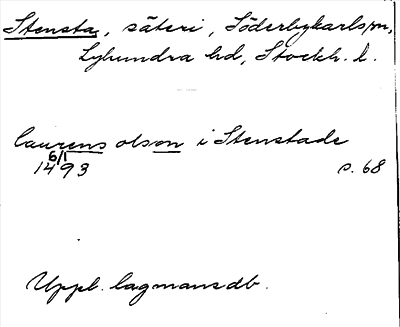 Stensta, säteri, Söderbykarls sn,
Lyhundra hd, Stockh. l.
laurens olson i Stenstade
6/1
1493 s. 68
Uppl. lagmansdb.